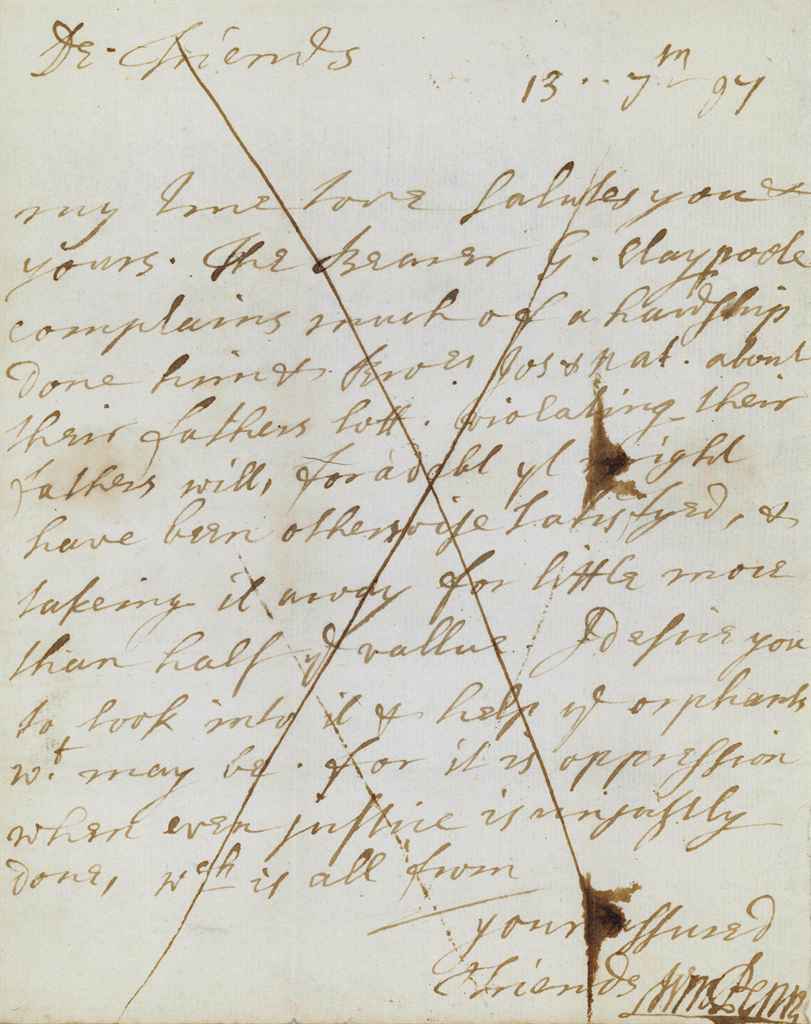 De. ffriends
13.. 7m 97
my true love salutes you &
yours. The Bearer G. Claypoole
complains much of a hardship
done him & Jos & Nat. about
their fathers lott. violating their
fathers will, for a debt yt might
have been otherwise satisfyed, &
takeing it away for little more
than half ye vallue. I desire you
to look into it & help ye orphants
wt. may be. for it is oppression
when even justice is unjustly
done, wch is all from
your assured
ffriends Wm Penn